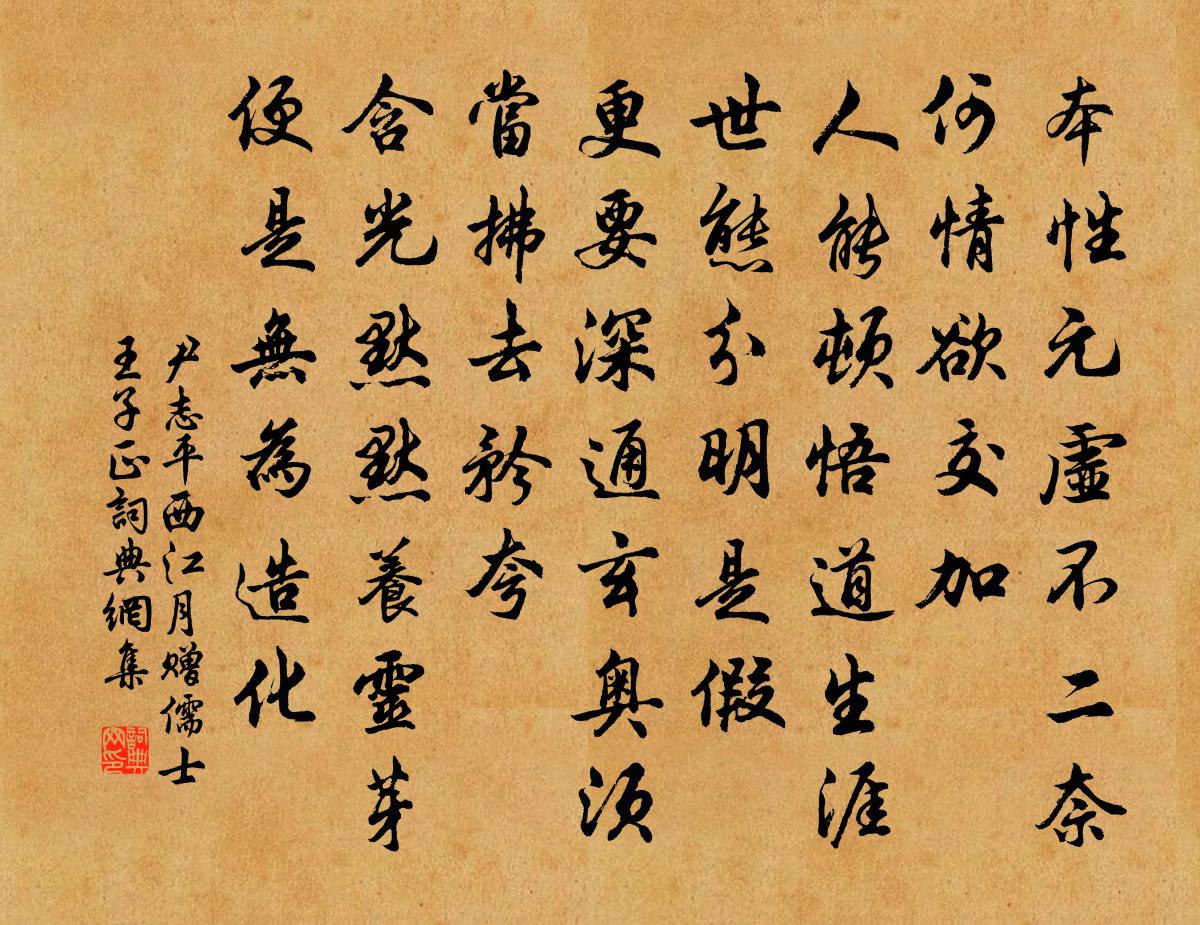 本性元虛不二奈
何情欲交加
人能頓悟道生涯
世態分明是假
更要深通玄奧須
當拂去矜夸
含光默默養靈芽
便是無為造化
尹志平西江月赠儒士
王子正詞典網集
詞典
网印